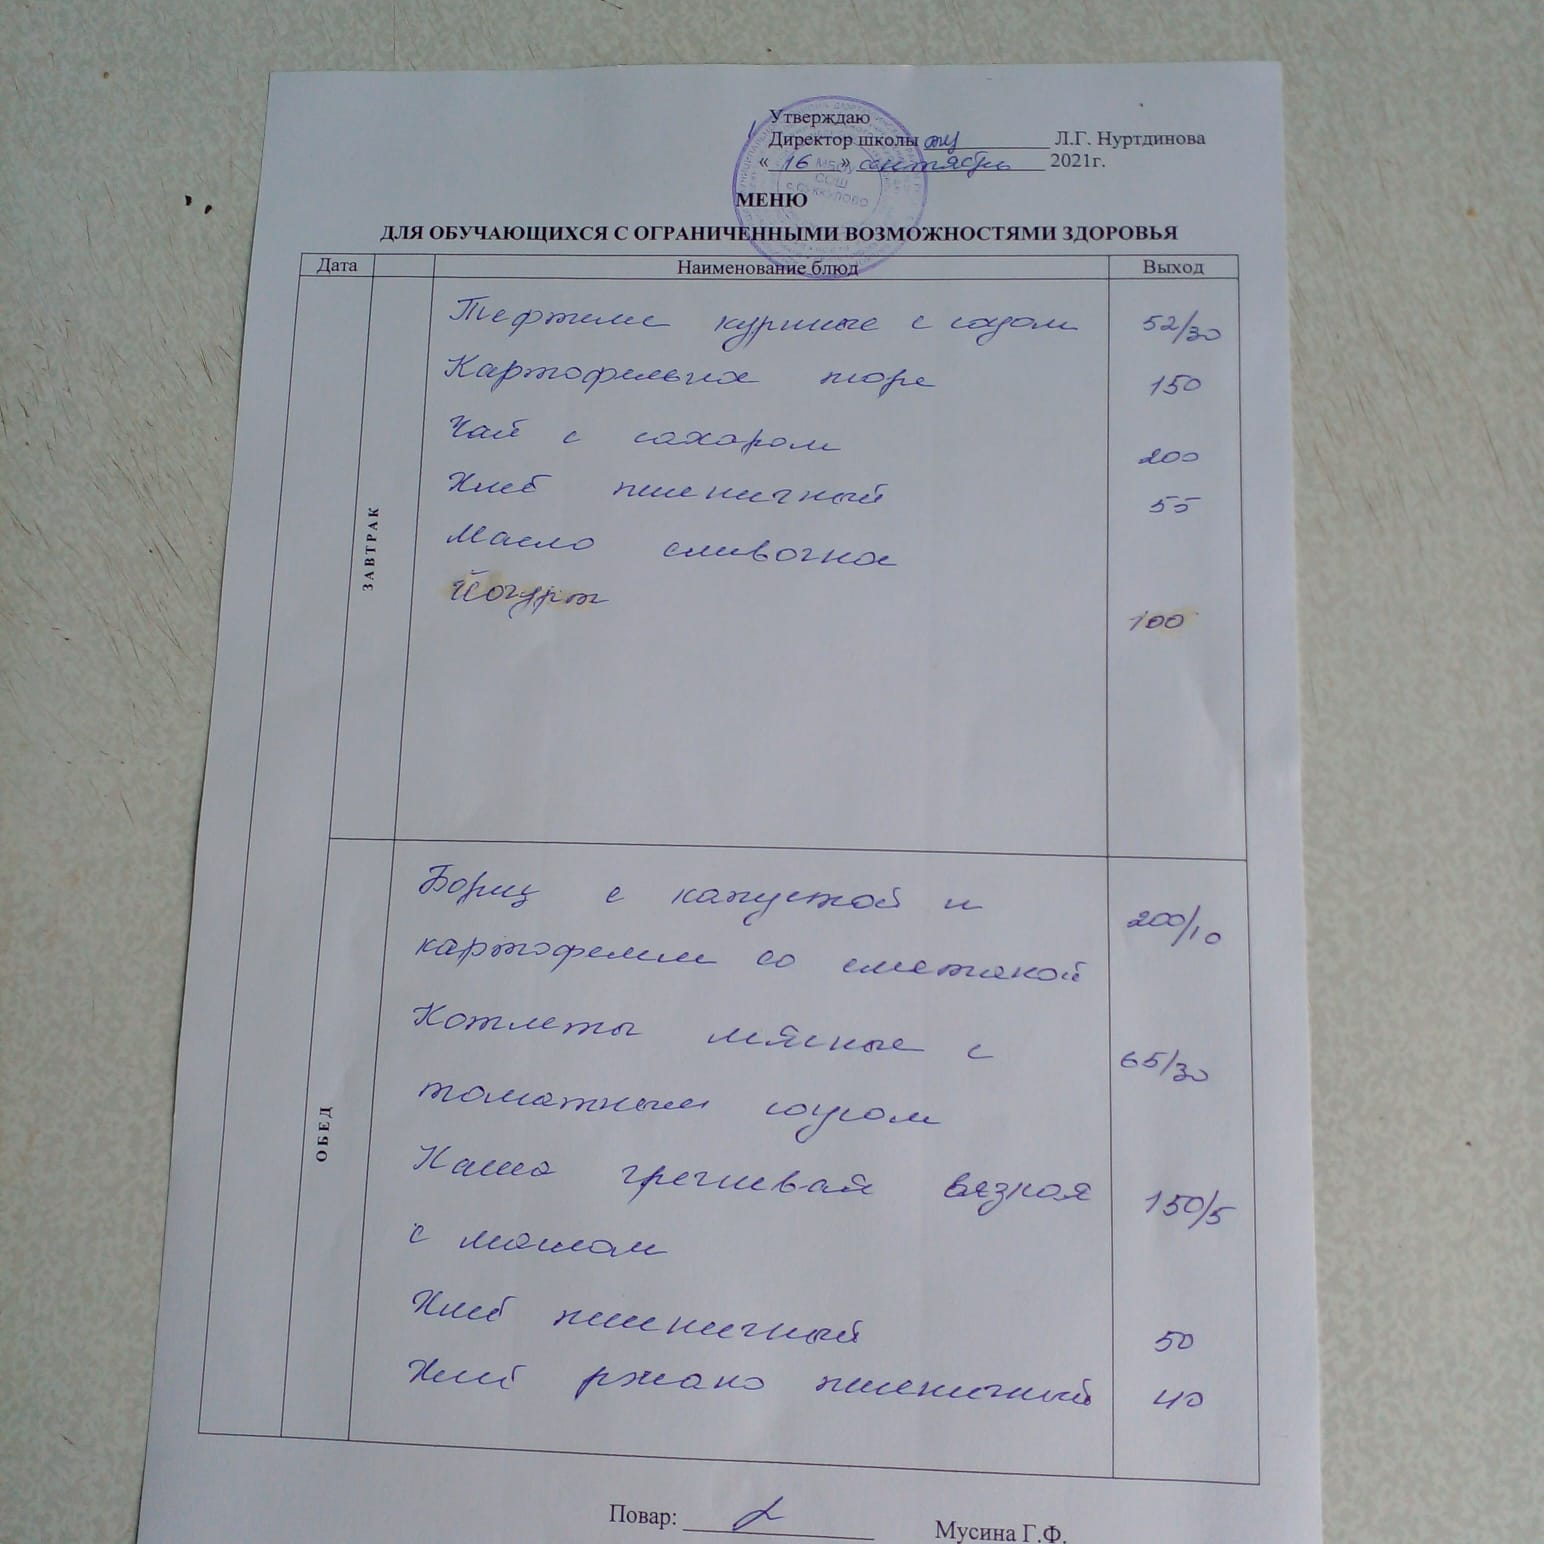 Утверждаю
Директор школы Л.Г. Нуртдинова
« 16 » сентября 2021г.
МБОУ
СОШ
МЕНЮ
ДЛЯ ОБУЧАЮЩИХСЯ С ОГРАНИЧЕННЫМИ ВОЗМОЖНОСТЯМИ ЗДОРОВЬЯ
Дата Наименование блюд Выход
ЗАВТРАК
Тефтели куриные с соусом 52/30
Картофельное пюре 150
Чай с сахаром 200
Хлеб пшеничный 55
Масло сливочное
Йогурт 100
ОБЕД
Борщ с капустой и 200/10
картофелем со сметаной
Котлеты мясные с 65/30
томатным соусом
Каша гречневая вязкая 150/5
с маслом
Хлеб пшеничный 50
Хлеб ржано пшеничный 40
Повар: Мусина Г.Ф.